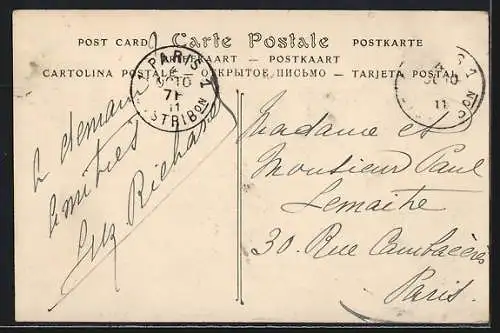 POST CARD Carte Postale POSTKARTE
BRIEFKAART — POSTKAART
CARTOLINA POSTALE — ОТКРЫТОЕ ПИСЬМО — TARJETA POSTAL
PARIS 1
7 F
11
DISTRIBON
11
à demain
amitiés
Richard
Madame et
Monsieur Paul
Lemaitre
30. Rue Cambacérès
Paris.